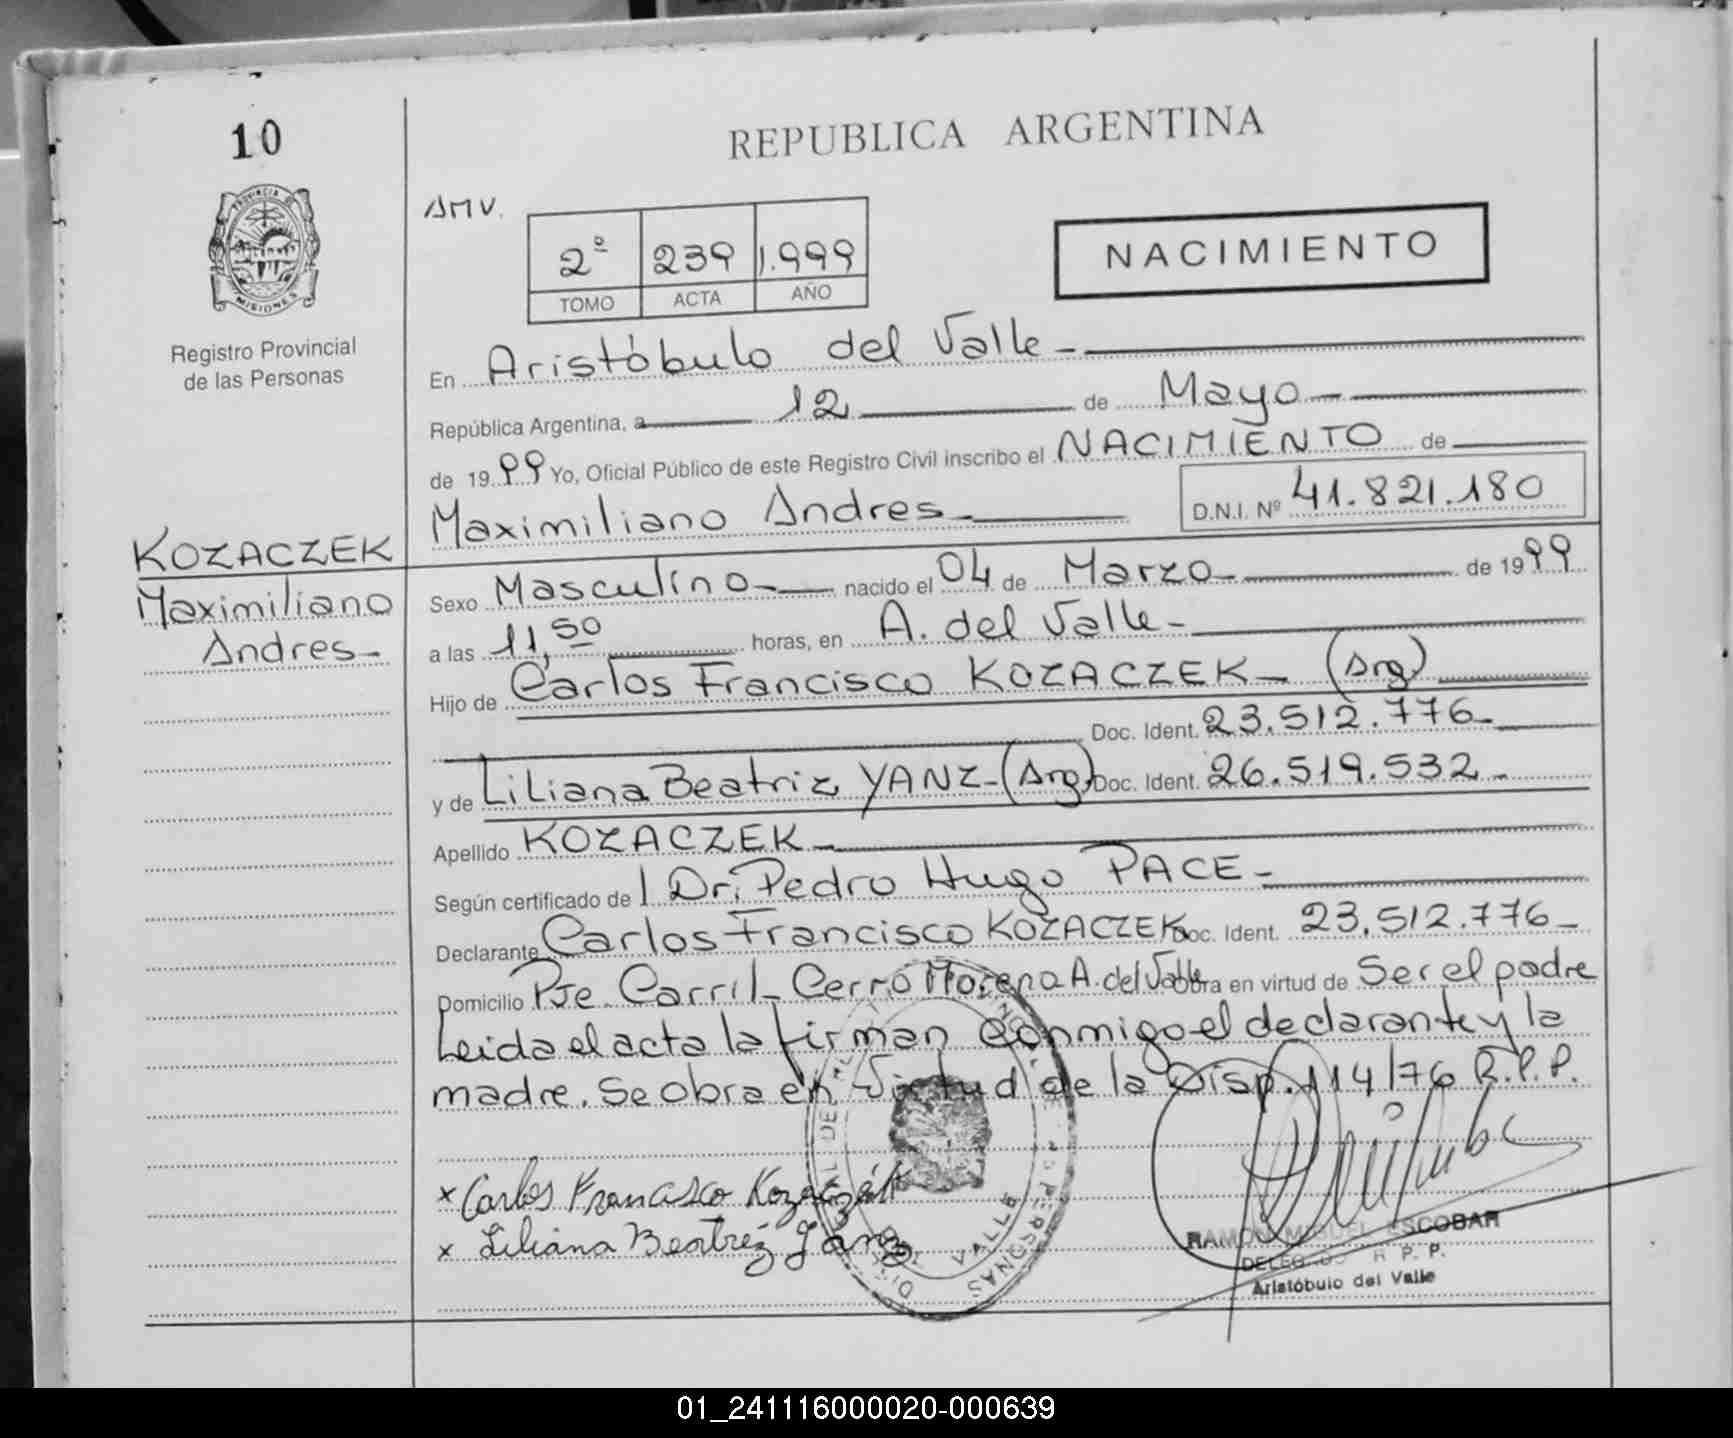 10
REPUBLICA ARGENTINA
PROVINCIA DE
MISIONES
Registro Provincial
de las Personas
AMV.
2º 239 1.999
TOMO ACTA AÑO
NACIMIENTO
En Aristóbulo del Valle-
República Argentina, a 12 de Mayo
de 1999 Yo, Oficial Público de este Registro Civil inscribo el NACIMIENTO de
Maximiliano Andres D.N.I. Nº 41.821.180
KOZACZEK
Maximiliano
Andres-
Sexo Masculino nacido el 04 de Marzo de 1999
a las 11,50 horas, en A. del Valle-
Hijo de Carlos Francisco KOZACZEK (Arg)
Doc. Ident. 23.512.776-
y de Liliana Beatriz YANZ-(Arg) Doc. Ident. 26.519.532-
Apellido KOZACZEK-
Según certificado de Dr. Pedro Hugo PACE-
Declarante Carlos Francisco KOZACZEK Doc. Ident. 23.512.776-
Domicilio Pje. Carril- Cerro Moreno A. del Valle Obra en virtud de Ser el padre
Leida el acta la firman conmigo el declarante y la
madre. Se obra en virtud de la Disp. 114/76 R.P.P.
x Carlos Francisco Kozaczek
x Liliana Beatriz Yanz
VALLE
PERSONAS
RAMON MIGUEL ESCOBAR
DELEGADO R. P. P.
Aristóbulo del Valle
01_241116000020-000639